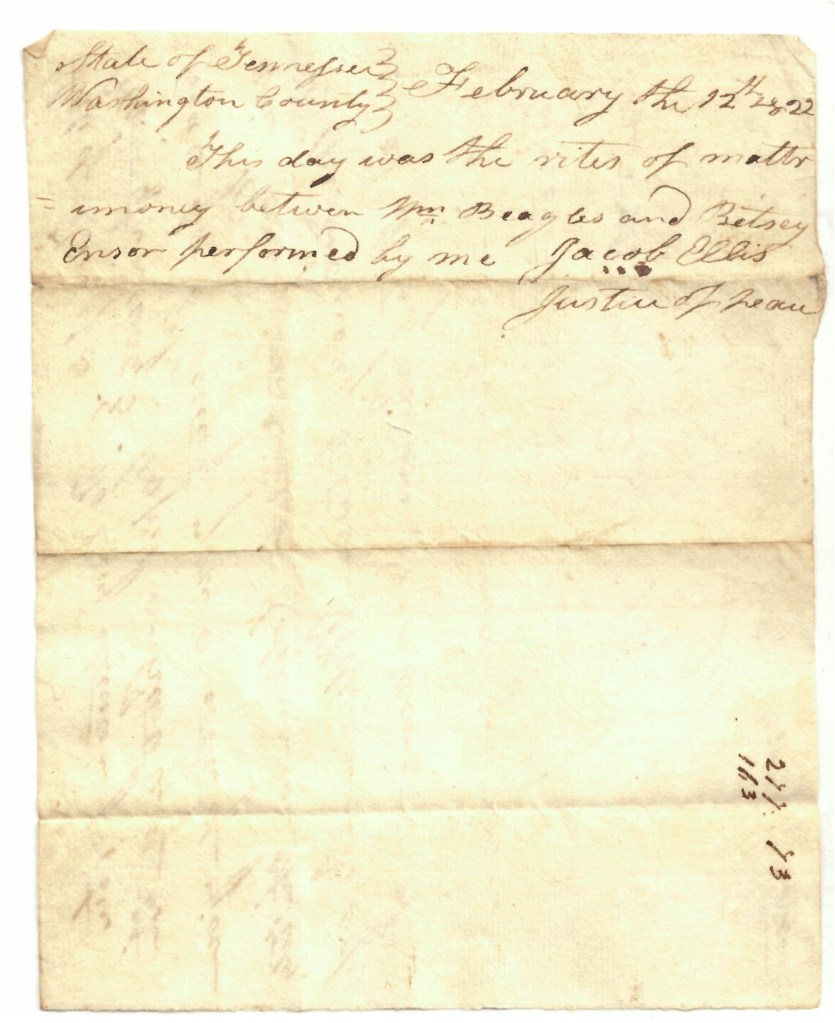 State of Tennessee }
Washington County } February the 12th 1822
This day was the rites of mattr
= imoney betwen Wm Beagles and Betsey
Ensor performed by me Jacob Ellis
Justice of peace
163